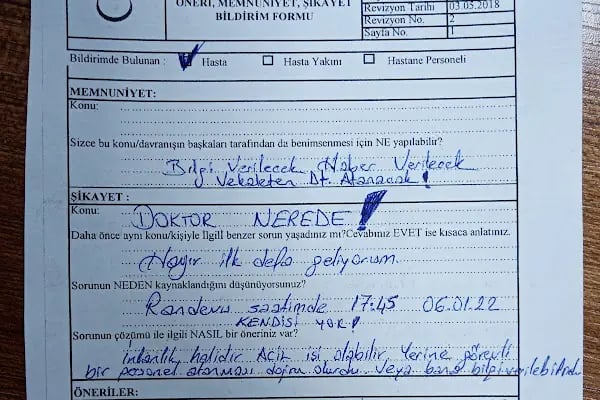 ÖNERİ, MEMNUNİYET, ŞİKAYET
BİLDİRİM FORMU
Revizyon Tarihi 03.05.2018
Revizyon No. 2
Sayfa No. 1
Bildirimde Bulunan : Hasta Hasta Yakını Hastane Personeli
MEMNUNİYET:
Konu:
Sizce bu konu/davranışın başkaları tarafından da benimsenmesi için NE yapılabilir?
Bilgi Verilecek Haber Verilecek
Vekaleten Dt. Atanacak!
ŞİKAYET :
Konu: DOKTOR NEREDE!
Daha önce aynı konu/kişiyle İlgill benzer sorun yaşadınız mı?Cevabınız EVET ise kısaca anlatınız.
Hayır ilk defa geliyorum
Sorunun NEDEN kaynaklandığını düşünüyorsunuz?
Randevu saatimde 17:45 06.01.22
KENDİSİ YOK!
Sorunun çözümü ile ilgili NASIL bir öneriniz var?
insanlık halidir Acil işi olabilir Yerine görevli
bir personel atanması doğru olurdu veya bana bilgi verilebilirdi
ÖNERİLER: